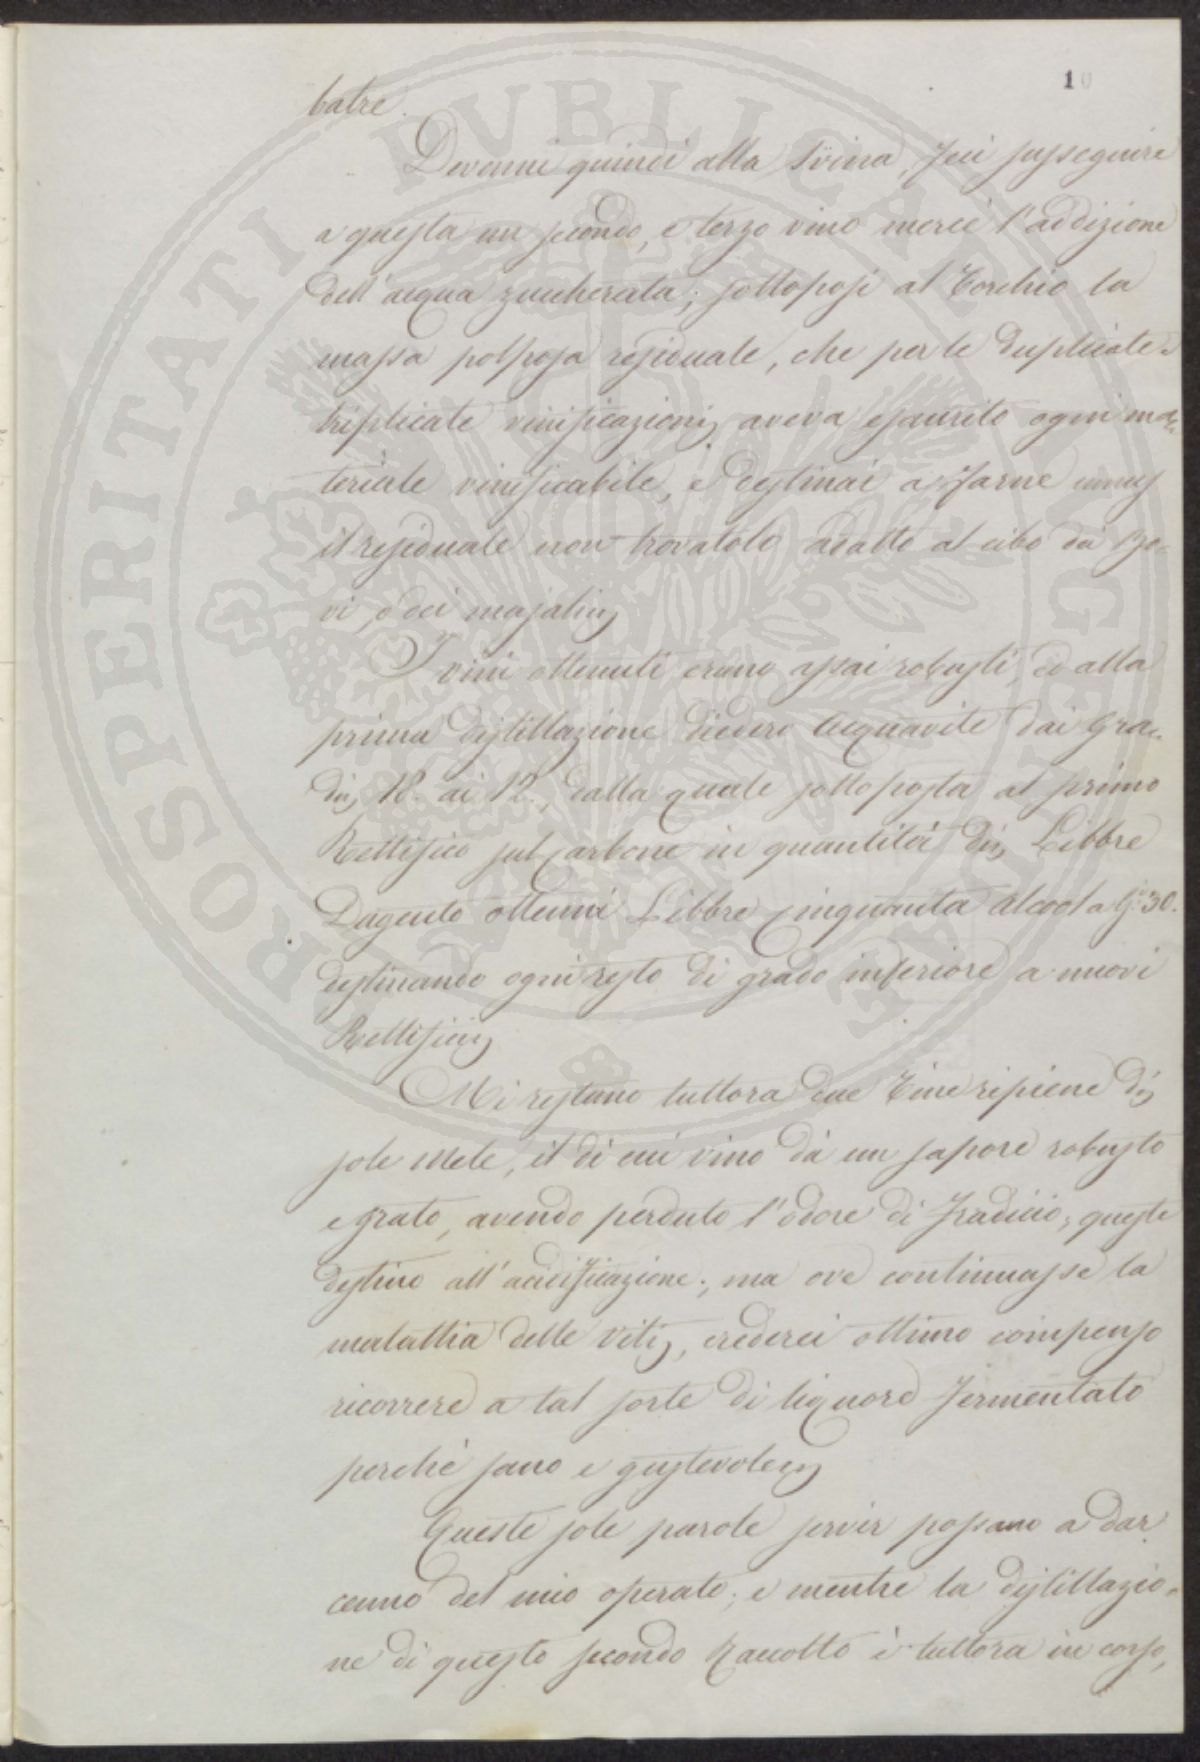 10
batre.
Devenni quindi alla Svina, feci susseguire
a questa un secondo, e terzo vino mercè l'addizione
dell'acqua zuccherata; sottoposi al Torchio la
massa polposa residuale, che per le duplicate-
triplicate vinificazioni aveva esaurito ogni ma-
teriale vinificabile, e destinai a farne
il residuale non trovatolo adatto al cibo dei Bo-
vi, o dei majali
I vini ottenuti erano assai robusti, ed alla
prima distillazione diedero Acquavite dai Gra-
di 18. ai 12., dalla quale sottoposta al primo
Rettifico sul Carbone in quantità di Libbre
Dugento ottenni Libbre Cinquanta Alcool a G.i 30.
destinando ogni resto di grado inferiore a nuovi
Rettifici
Mi restano tuttora due Tine ripiene di
sole Mele, il di cui vino dà un sapore robusto
e grato, avendo perduto l'odore di fradicio; queste
destino all'acidificazione; ma ove continuasse la
malattia delle Viti, crederei ottimo compenso
ricorrere a tal sorte di liquore fermentato
perchè sano e gustevole
Queste sole parole servir possano a dar
cenno del mio operato; e mentre la distillazio-
ne di questo secondo Raccolto è tuttora in corso,
PROSPERITATI PVBLICAE AVGENDAE